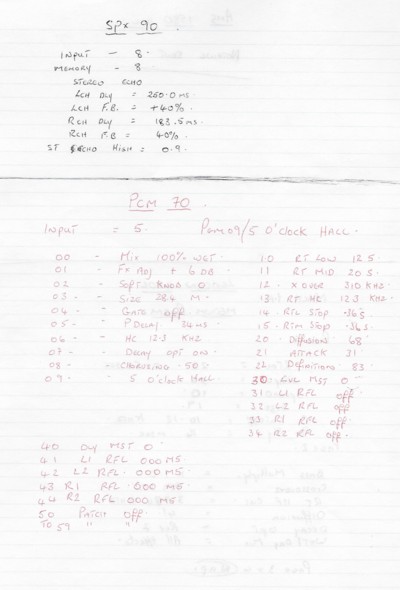 SPX 90.
INPUT - 8.
MEMORY - 8
STEREO ECHO
LCH DLY = 250.0 MS.
LCH F.B. = +40%.
RCH DLY = 183.5 MS.
RCH F.B = 40%.
ST ECHO HIGH = 0.9.
PCM 70.
INPUT = 5. PGM 09/5 O'CLOCK HALL.
00 - MIX 100% WET
01 - FX ADJ + 6 DB
02 - SOFT KNOB 0
03 - SIZE 28.4 M
04 - GATE off
05 - P DELAY 34 MS
06 - HC 12.3 KHZ
07 - DELAY OPT ON
08 - CHORUSING 50
09 - 5 O'CLOCK HALL
10 RT LOW 12 S.
11 RT MID 20 S.
12 X OVER 310 KHZ
13 RT HC 12.3 KHZ
14 RTL STOP .36 S
15 RTM STOP .36 S
20 DIFFUSIONS 68
21 ATTACK 31
22 DEFINITIONS 83.
30 LVL MST 0
31 L1 RFL off
32 L2 RFL off
33 R1 RFL off
34 R2 RFL off.
40 DLY MST 0
41 L1 RFL 000 MS.
42 L2 RFL 000 MS
43 R1 RFL 000 MS
44 R2 RFL 000 MS
50 PATCH off.
TO 59 " "